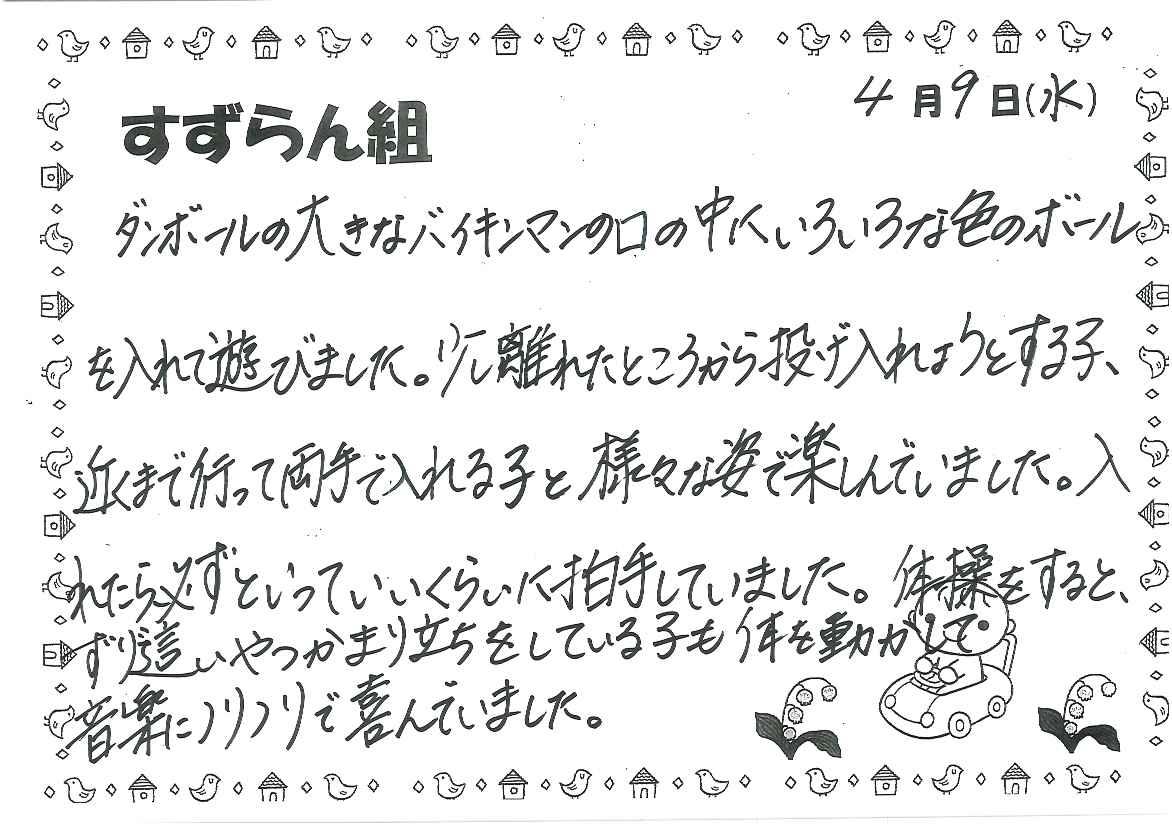 4月9日(水)
すずらん組
ダンボールの大きなバイキンマンの口の中にいろいろな色のボール
を入れて遊びました。少し離れたところから投げ入れようとする子、
近くまで行って両手で入れる子と様々な姿で楽しんでいました。入
れたら必ずといっていいくらいに拍手していました。体操をすると、
ずり這いやつかまり立ちをしている子も体を動かして
音楽にノリノリで喜んでいました。